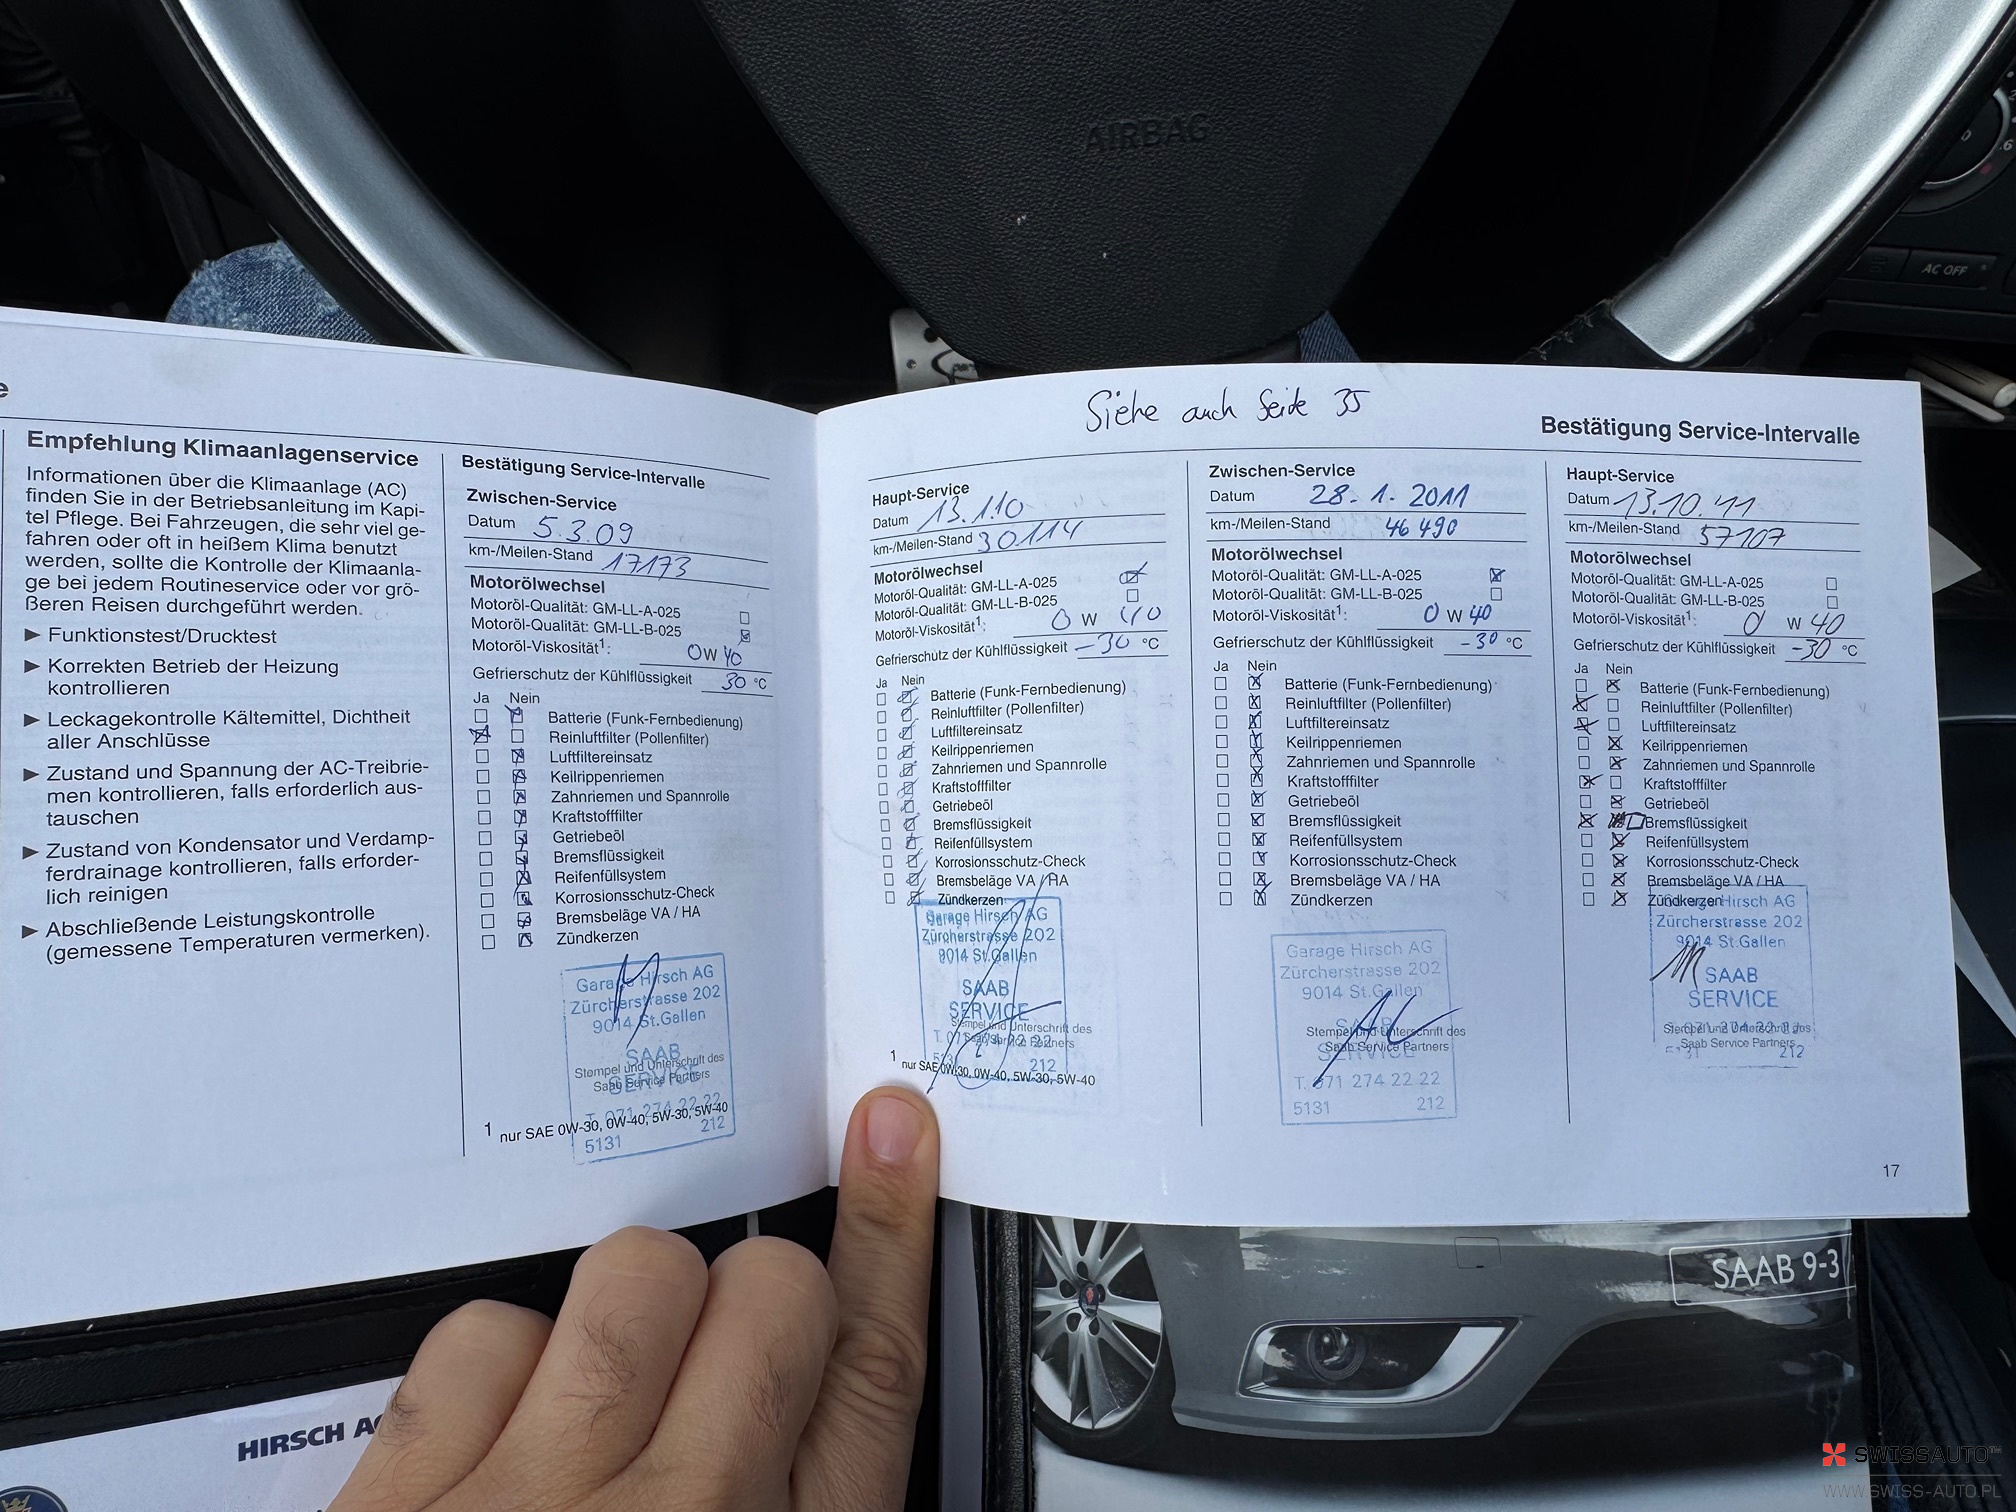 AIRBAG
AC OFF
Empfehlung Klimaanlagenservice
Informationen über die Klimaanlage (AC)
finden Sie in der Betriebsanleitung im Kapi-
tel Pflege. Bei Fahrzeugen, die sehr viel ge-
fahren oder oft in heißem Klima benutzt
werden, sollte die Kontrolle der Klimaanla-
ge bei jedem Routineservice oder vor grö-
ßeren Reisen durchgeführt werden.
► Funktionstest/Drucktest
► Korrekten Betrieb der Heizung
kontrollieren
► Leckagekontrolle Kältemittel, Dichtheit
aller Anschlüsse
► Zustand und Spannung der AC-Treibrie-
men kontrollieren, falls erforderlich aus-
tauschen
► Zustand von Kondensator und Verdamp-
ferdrainage kontrollieren, falls erforder-
lich reinigen
► Abschließende Leistungskontrolle
(gemessene Temperaturen vermerken).
Bestätigung Service-Intervalle
Zwischen-Service
Datum 5.3.09
km-/Meilen-Stand 17173
Motorölwechsel
Motoröl-Qualität: GM-LL-A-025
Motoröl-Qualität: GM-LL-B-025
Motoröl-Viskosität¹: 0 W 40
Gefrierschutz der Kühlflüssigkeit 30 °C
Ja Nein
Batterie (Funk-Fernbedienung)
Reinluftfilter (Pollenfilter)
Luftfiltereinsatz
Keilrippenriemen
Zahnriemen und Spannrolle
Kraftstofffilter
Getriebeöl
Bremsflüssigkeit
Reifenfüllsystem
Korrosionsschutz-Check
Bremsbeläge VA / HA
Zündkerzen
Garage Hirsch AG
Zürcherstrasse 202
9014 St.Gallen
SAAB
SERVICE
Stempel und Unterschrift des
Saab Service Partners
T. 071 274 22 22
5131 212
1 nur SAE 0W-30, 0W-40, 5W-30, 5W-40
Siehe auch Seite 35
Bestätigung Service-Intervalle
Haupt-Service
Datum 13.1.10
km-/Meilen-Stand 30114
Motorölwechsel
Motoröl-Qualität: GM-LL-A-025
Motoröl-Qualität: GM-LL-B-025
Motoröl-Viskosität¹: 0 W 40
Gefrierschutz der Kühlflüssigkeit -30 °C
Ja Nein
Batterie (Funk-Fernbedienung)
Reinluftfilter (Pollenfilter)
Luftfiltereinsatz
Keilrippenriemen
Zahnriemen und Spannrolle
Kraftstofffilter
Getriebeöl
Bremsflüssigkeit
Reifenfüllsystem
Korrosionsschutz-Check
Bremsbeläge VA / HA
Zündkerzen
Garage Hirsch AG
Zürcherstrasse 202
9014 St.Gallen
SAAB
SERVICE
Stempel und Unterschrift des
Saab Service Partners
T. 071 274 22 22
5131 212
1 nur SAE 0W-30, 0W-40, 5W-30, 5W-40
Zwischen-Service
Datum 28.1.2011
km-/Meilen-Stand 46 490
Motorölwechsel
Motoröl-Qualität: GM-LL-A-025
Motoröl-Qualität: GM-LL-B-025
Motoröl-Viskosität¹: 0 W 40
Gefrierschutz der Kühlflüssigkeit -30 °C
Ja Nein
Batterie (Funk-Fernbedienung)
Reinluftfilter (Pollenfilter)
Luftfiltereinsatz
Keilrippenriemen
Zahnriemen und Spannrolle
Kraftstofffilter
Getriebeöl
Bremsflüssigkeit
Reifenfüllsystem
Korrosionsschutz-Check
Bremsbeläge VA / HA
Zündkerzen
Garage Hirsch AG
Zürcherstrasse 202
9014 St.Gallen
SAAB
SERVICE
Stempel und Unterschrift des
Saab Service Partners
T. 071 274 22 22
5131 212
Haupt-Service
Datum 13.10.'11
km-/Meilen-Stand 57107
Motorölwechsel
Motoröl-Qualität: GM-LL-A-025
Motoröl-Qualität: GM-LL-B-025
Motoröl-Viskosität¹: 0 W 40
Gefrierschutz der Kühlflüssigkeit -30 °C
Ja Nein
Batterie (Funk-Fernbedienung)
Reinluftfilter (Pollenfilter)
Luftfiltereinsatz
Keilrippenriemen
Zahnriemen und Spannrolle
Kraftstofffilter
Getriebeöl
Bremsflüssigkeit
Reifenfüllsystem
Korrosionsschutz-Check
Bremsbeläge VA / HA
Zündkerzen
Garage Hirsch AG
Zürcherstrasse 202
9014 St.Gallen
SAAB
SERVICE
Stempel und Unterschrift des
Saab Service Partners
T. 071 274 22 22
5131 212
17
SAAB 9-3
HIRSCH AG
SWISSAUTO™
WWW.SWISS-AUTO.PL